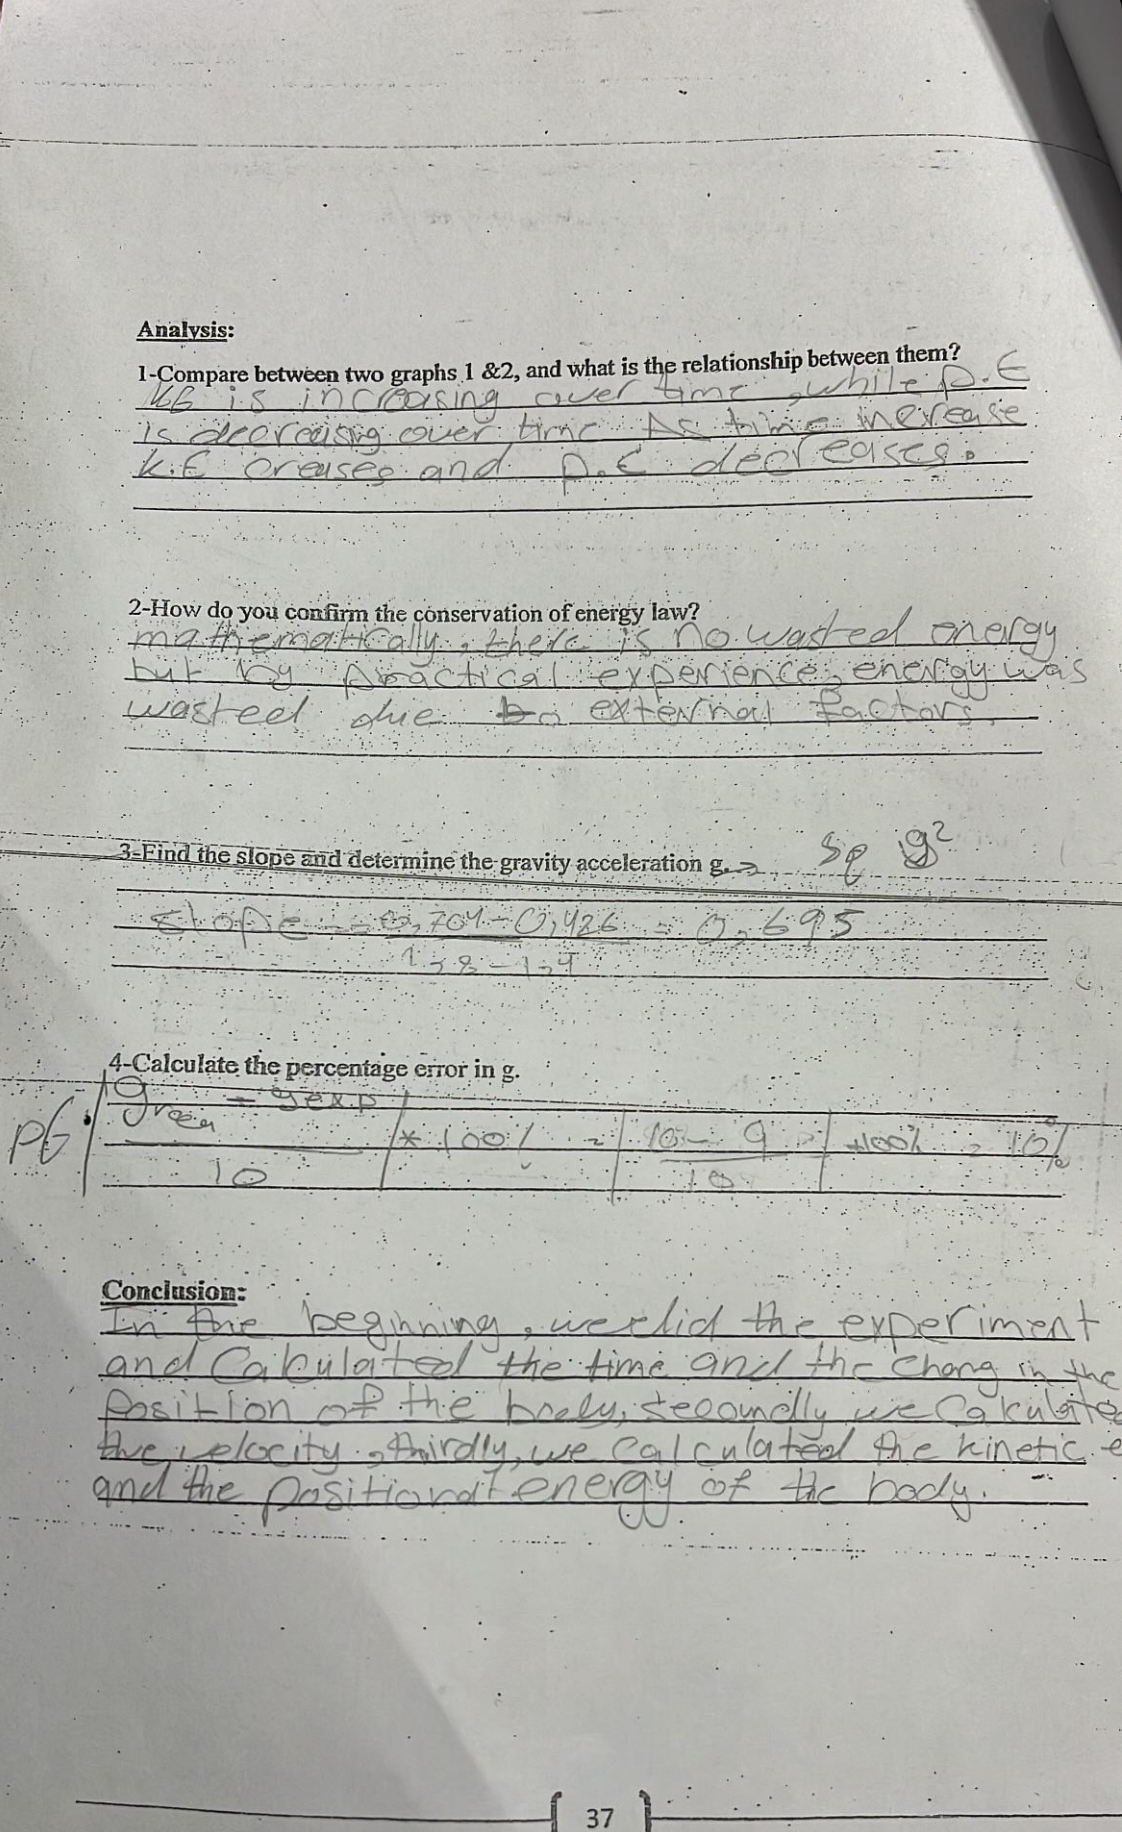 Analysis:
1-Compare between two graphs 1 &2, and what is the relationship between them?
KE is increasing over time, while P.E
is decreaisig over time As time increase
K.E creases and P.E decreases.
2-How do you confirm the conservation of energy law?
mathematically, there is no wasted energy
but by practical experience, energy was
wasted due to external factors.
3-Find the slope and determine the gravity acceleration g.→ g²
slope = 0,704-0,426 = 0,695
1,8-1,4
4-Calculate the percentage error in g.
g - gexp
PG: * 100% = 10-9 *100% = 10%
10 10
Conclusion:
In the beginning, we did the experiment
and Calculated the time and the chang in the
position of the body, secoundly we Calculated
the velocity, thirdly, we calculated the kinetic e
and the positional energy of the body.
37